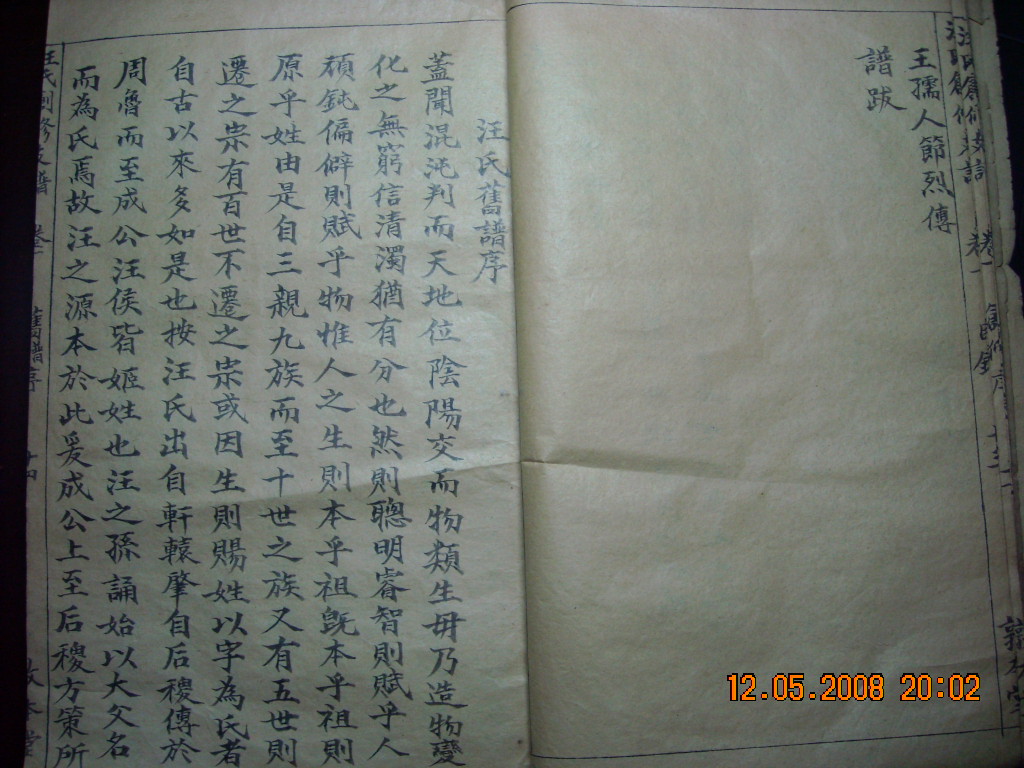 王孺人節烈傳
譜跋
汪氏舊譜序
蓋聞混沌判而天地位陰陽交而物類生毋乃造物變
化之無窮信清濁猶有分也然則聰明睿智則賦乎人
頑鈍偏僻則賦乎物惟人之生則本乎祖既本乎祖則
原乎姓由是自三親九族而至十世之族又有五世則
遷之宗有百世不遷之宗或因生則賜姓以字為氏者
自古以來多如是也按汪氏出自軒轅肇自后稷傳於
周魯而至成公汪侯皆姬姓也汪之孫誦始以大父名
而為氏焉故汪之源本於此爰成公上至后稷方策所
汪氏創修支譜 卷一 舊譜序 十四 敦本堂
12.05.2008 20:02